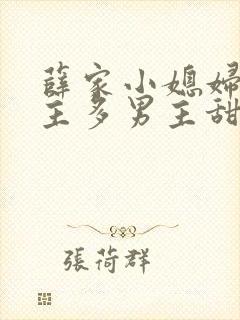 薛家小媳婦
主多男主甜
張荷群